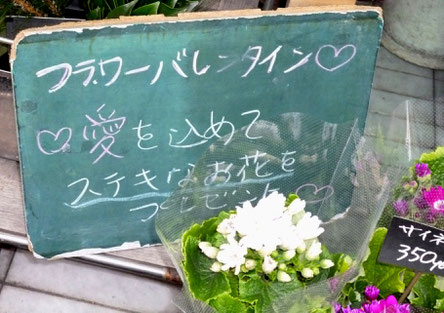 フラワーバレンタイン♡
♡愛を込めて
ステキなお花を
プレゼント♡
サイネ
350